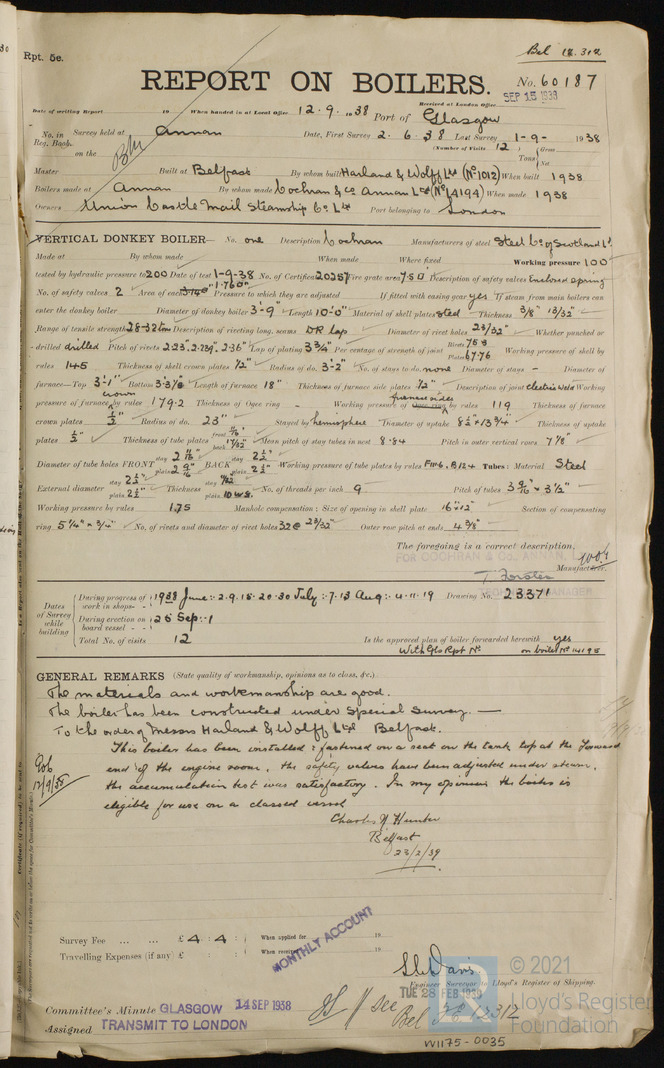 Rpt. 5e.
Bel 12.312
REPORT ON BOILERS.
No. 60187
Received at London Office SEP 15 1938
Date of writing Report 19 When handed in at Local Office 12.9.1938 Port of Glasgow
No. in Reg. Book. Survey held at Annan Date, First Survey 2.6.38 Last Survey 1-9-1938
on the (Number of Visits 12) Tons Gross Net
Master Built at Belfast By whom built Harland & Wolff Ltd (No 1012) When built 1938
Boilers made at Annan By whom made Cochran & Co Annan Ltd (No 14194) When made 1938
Owners Union Castle Mail Steamship Co Ltd Port belonging to London
VERTICAL DONKEY BOILER— No. one Description Cochran Manufacturers of steel Steel Co of Scotland Ld
Made at By whom made When made Where fixed Working pressure 100
tested by hydraulic pressure to 200 Date of test 1-9-38 No. of Certificate 20257 Fire grate area 7.50 Description of safety valves Enclosed spring
No. of safety valves 2 Area of each 1.760" Pressure to which they are adjusted If fitted with easing gear yes If steam from main boilers can
enter the donkey boiler Diameter of donkey boiler 3'-9" Length 10'-0" Material of shell plates steel Thickness 3/8" 13/32"
Range of tensile strength 28-32 tons Description of riveting long. seams DR lap Diameter of rivet holes 23/32" Whether punched or
drilled drilled Pitch of rivets 2.23", 2.239", 2.36" Lap of plating 3 3/4" Per centage of strength of joint Rivets 75.8 Plates 67.76 Working pressure of shell by
rules 145 Thickness of shell crown plates 1/2" Radius of do. 3'-2" No. of stays to do. none Diameter of stays - Diameter of
furnace—Top 3'-1" Bottom 3'-3 1/8" Length of furnace 18" Thickness of furnace side plates 1/2" Description of joint electric weld Working
pressure of furnace crown by rules 179.2 Thickness of Ogee ring - Working pressure of furnace sides by rules 119 Thickness of furnace
crown plates 1/2" Radius of do. 23" Stayed by hemisphere Diameter of uptake 8 1/2" x 13 3/4" Thickness of uptake
plates 1/2" Thickness of tube plates front 11/16" back 17/32" Mean pitch of stay tubes in nest 8.84 Pitch in outer vertical rows 7 7/8"
Diameter of tube holes FRONT stay 2 11/16" plain 2 9/16" BACK stay 2 1/2" plain 2 1/2" Working pressure of tube plates by rules F 116. B 124 Tubes: Material Steel
External diameter stay 2 1/2" plain 2 1/2" Thickness stay 9/32 plain 10 WG. No. of threads per inch 9 Pitch of tubes 3 9/16" x 3 1/2"
Working pressure by rules 175 Manhole compensation: Size of opening in shell plate 16" x 12" Section of compensating
ring 5 1/4" x 3/4" No. of rivets and diameter of rivet holes 32 @ 23/32" Outer row pitch at ends 4 3/8"
The foregoing is a correct description,
FOR COCHRAN & CO., ANNAN, L
T. Forster
Manufacturer.
MANAGER
Dates of Survey while building
During progress of work in shops - - 1938 June:- 2.9.15.20.30 July:- 7.13 Aug:- 4.11.19 Drawing No. 23371
During erection on board vessel - - - 25 Sep:- 1
Total No. of visits 12 Is the approved plan of boiler forwarded herewith yes
With Gls Rpt No on boiler No 14195
GENERAL REMARKS (State quality of workmanship, opinions as to class, &c.)
The materials and workmanship are good.
The boiler has been constructed under Special Survey. —
To the order of Messrs Harland & Wolff Ltd Belfast.
This boiler has been installed & fastened on a seat on the tank top at the forward
end of the engine room, the safety valves have been adjusted under steam,
the accumulation test was satisfactory. In my opinion the boiler is
eligible for use on a classed vessel
Charles N Hunter
Belfast
23/2/39
12/9/38
Survey Fee ... ... £ 4 : 4 : When applied for 19
Travelling Expenses (if any) £ : : When received 19
MONTHLY ACCOUNT
Engineer Surveyor to Lloyd's Register of Shipping.
TUE 28 FEB 1939
Committee's Minute GLASGOW 14 SEP 1938
Assigned TRANSMIT TO LONDON
see Bel 12312
© 2021
Lloyd's Register
Foundation
W1175-0035